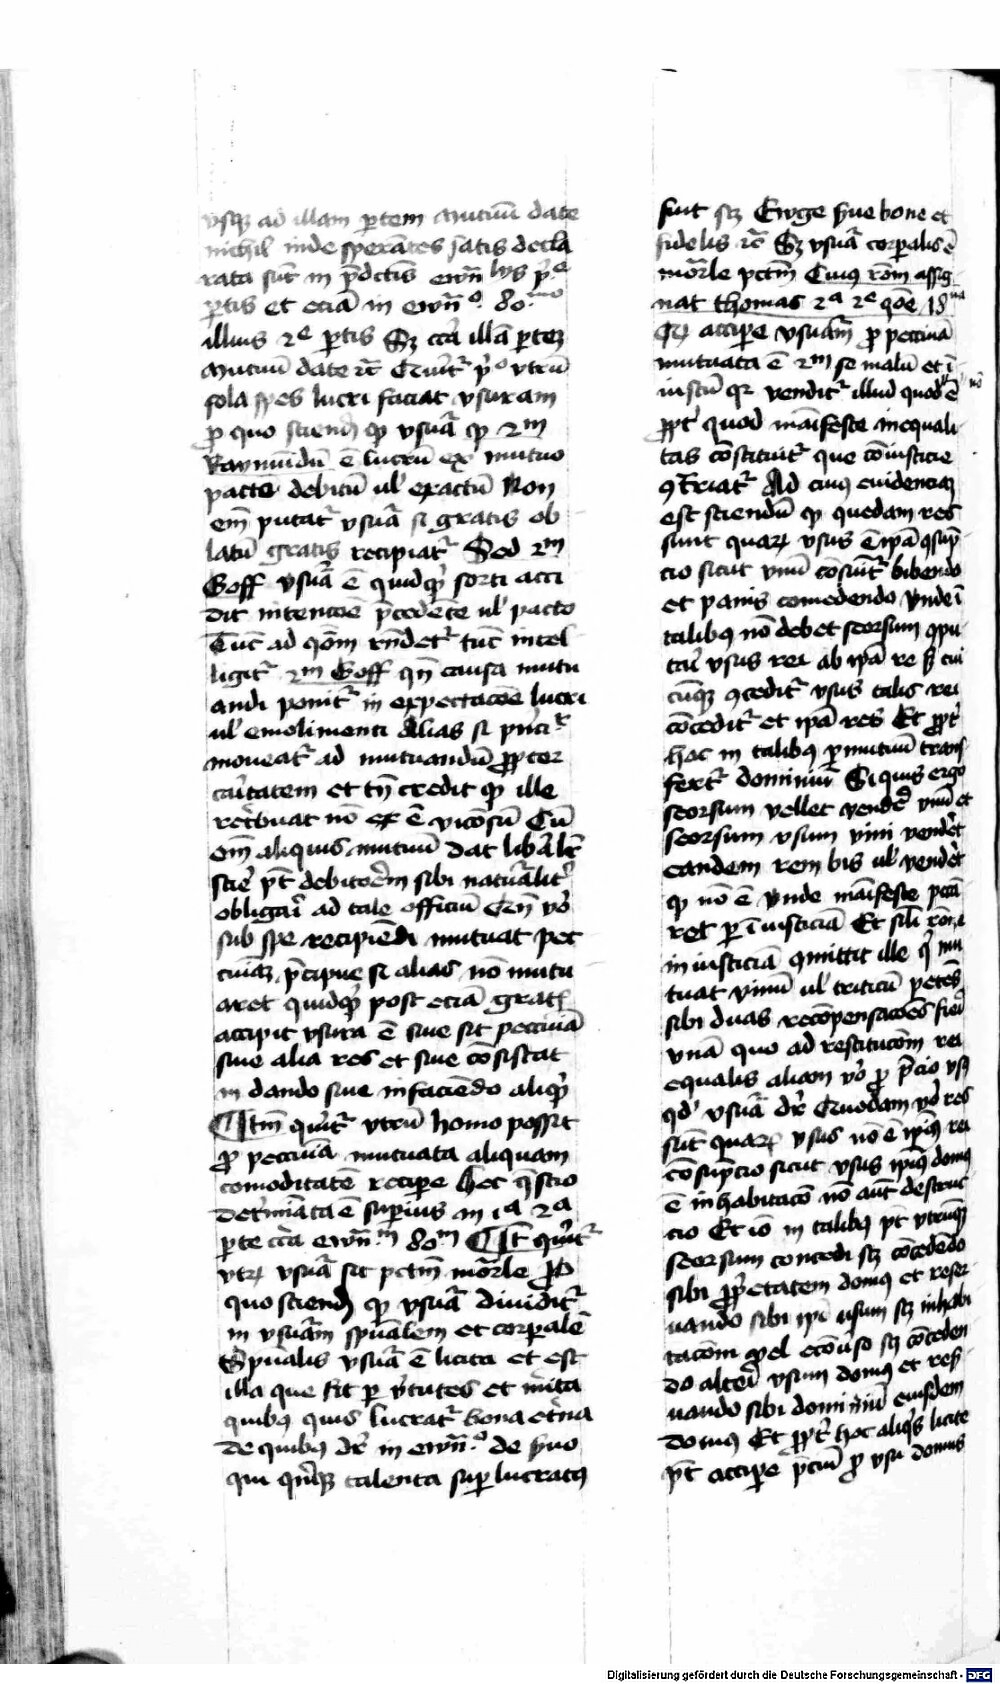 vsqz ad illam ptem mutuū date
nichil inde sperātes satis decla
rata sūt in p̄dctis ewn̄
ptis et eciā in ewn̄º 80mo
illius 2e ptis Sz cca illā ptez
Mutuū date rc̄ Querit̄ pº vtrū
sola spes lucri faciat vsuram
p quo sciend qp vsura qp 2m
Raymūdū ē lucrū ex mutuo
pacto debitū ul exactū Non
em̄ putat̄ vsura si gratis ob
latū gratis recipiat̄ Sed 2m
Goff vsura ē quidquid sorti acci
dit intencōe p̄cedēte ul pacto
Tūc ad qōm rn̄det̄ tūc intel
ligit̄ 2m Goff qn̄ causa mutu
andi ponit̄ in expectacōe lucri
ul emolimenti Alias si
moveat̄ ad mutuandū ppter
caritatem et tn̄ credit qp ille
retribuat nō ex ē Cū
em̄ aliquis mutuū dat
pt debitorem sibi naturalit̄
obligari ad tale officiū
sub spe recipiēdi mutuat pec
cuiaz p̄cipue si alias nō mutu
aret quidquid post eciā gratis
accipit vsura ē siue sit peccuiā
siue alia res et siue cōsistat
in dando siue in faciēdo aliquid
¶ Itm̄ querit̄ vtrū homo possit
p peccuia mutuata aliquam
comoditatē recipe Hec qstio
determiata ē superius in 1a 2a
pte cca ewn̄m 80m ¶ It̄ querit̄
vtrū vsura sit pctm̄ morle Pro
quo sciend qp vsura diuidit̄
in vsuram spualem et corpalē
Spualis vsura ē licita et est
illa que fit p v̄tutes et merita
quibus quis lucrat̄ bona eterna
De quibus dr̄ in ewn̄º de seruo
qui quīqz talenta sup lucratus
fuit scz Ewge serue bone et
fidelis rc̄ Sz vsura corpalis ē
morle pctm̄ Cuius rōm assig
nat thomas 2a 2e qōe 18
Qz accipe vsuram p peccuia
mutuata ē 2m se malū et ī
iustū qr vendit̄ illud quod nō ē
ppt̄ quod māifeste inequali
tas cōstituit̄ que iusticie
9triat̄ Ad cuius euidenciaz
est sciendū qp quedam res
sunt quarū vsus ē ipa 9sup
cio sicut vinū cōsuit̄ bibendo
et panis comedendo Vnde ī
talibus nō debet seorsum 9pu
tari vsus rei ab ipa re sz cui
cūqz 9cedit̄ vsus talis rei
cōcedit̄ et ipa res Et ppt̄
hoc in talibus p mutuū trans
fert̄ dominiū Si quis ergo
seorsum vellet vendere vinū et
seorsum vsum vini venderet
eandem rem bis ul venderet
qp nō ē Vnde māifeste pecca
ret p īiusticiā Et sili rōne
in iusticiā 9mittit ille q mu
tuat vinū ul triticū petēs
sibi duas recōpensacōes fieri
vnā quo ad restitucōm rei
equalis aliam vo p p̄cio vsus
qd vsura dr̄ Quedam vo res
sūt quarū vsus nō ē ipius rei
cōsupcio sicut vsus ipius domus
ē inhabitacō nō aūt destruc
cio Et iō in talibus pt vtrūqz
seorsum concedi scz cōcedēdo
sibi pprietatem domus et reser
uando sibi ipi usum scz inhabi
tacōm vel ecōuso scz cōceden
do alteri vsum domus et res
uando sibi dominiū eiusdem
domus Et ppt̄ hoc aliquis licite
pt accipe p̄ciū p vsu domus
Digitalisierung gefördert durch die Deutsche Forschungsgemeinschaft - DFG